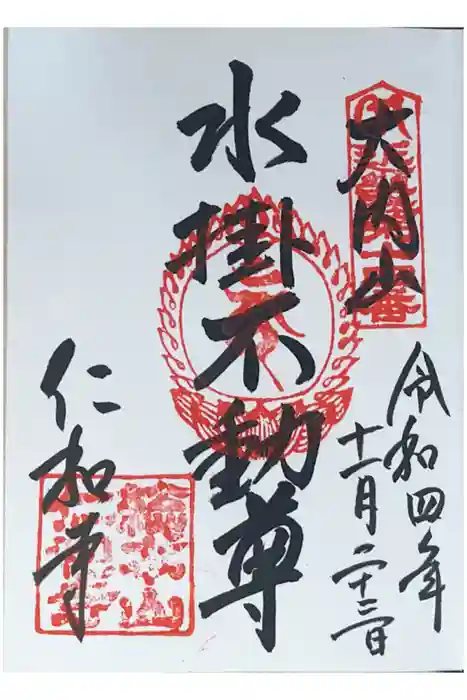 大内山
令和四年
十一月二十三日
水掛不動尊
仁和寺